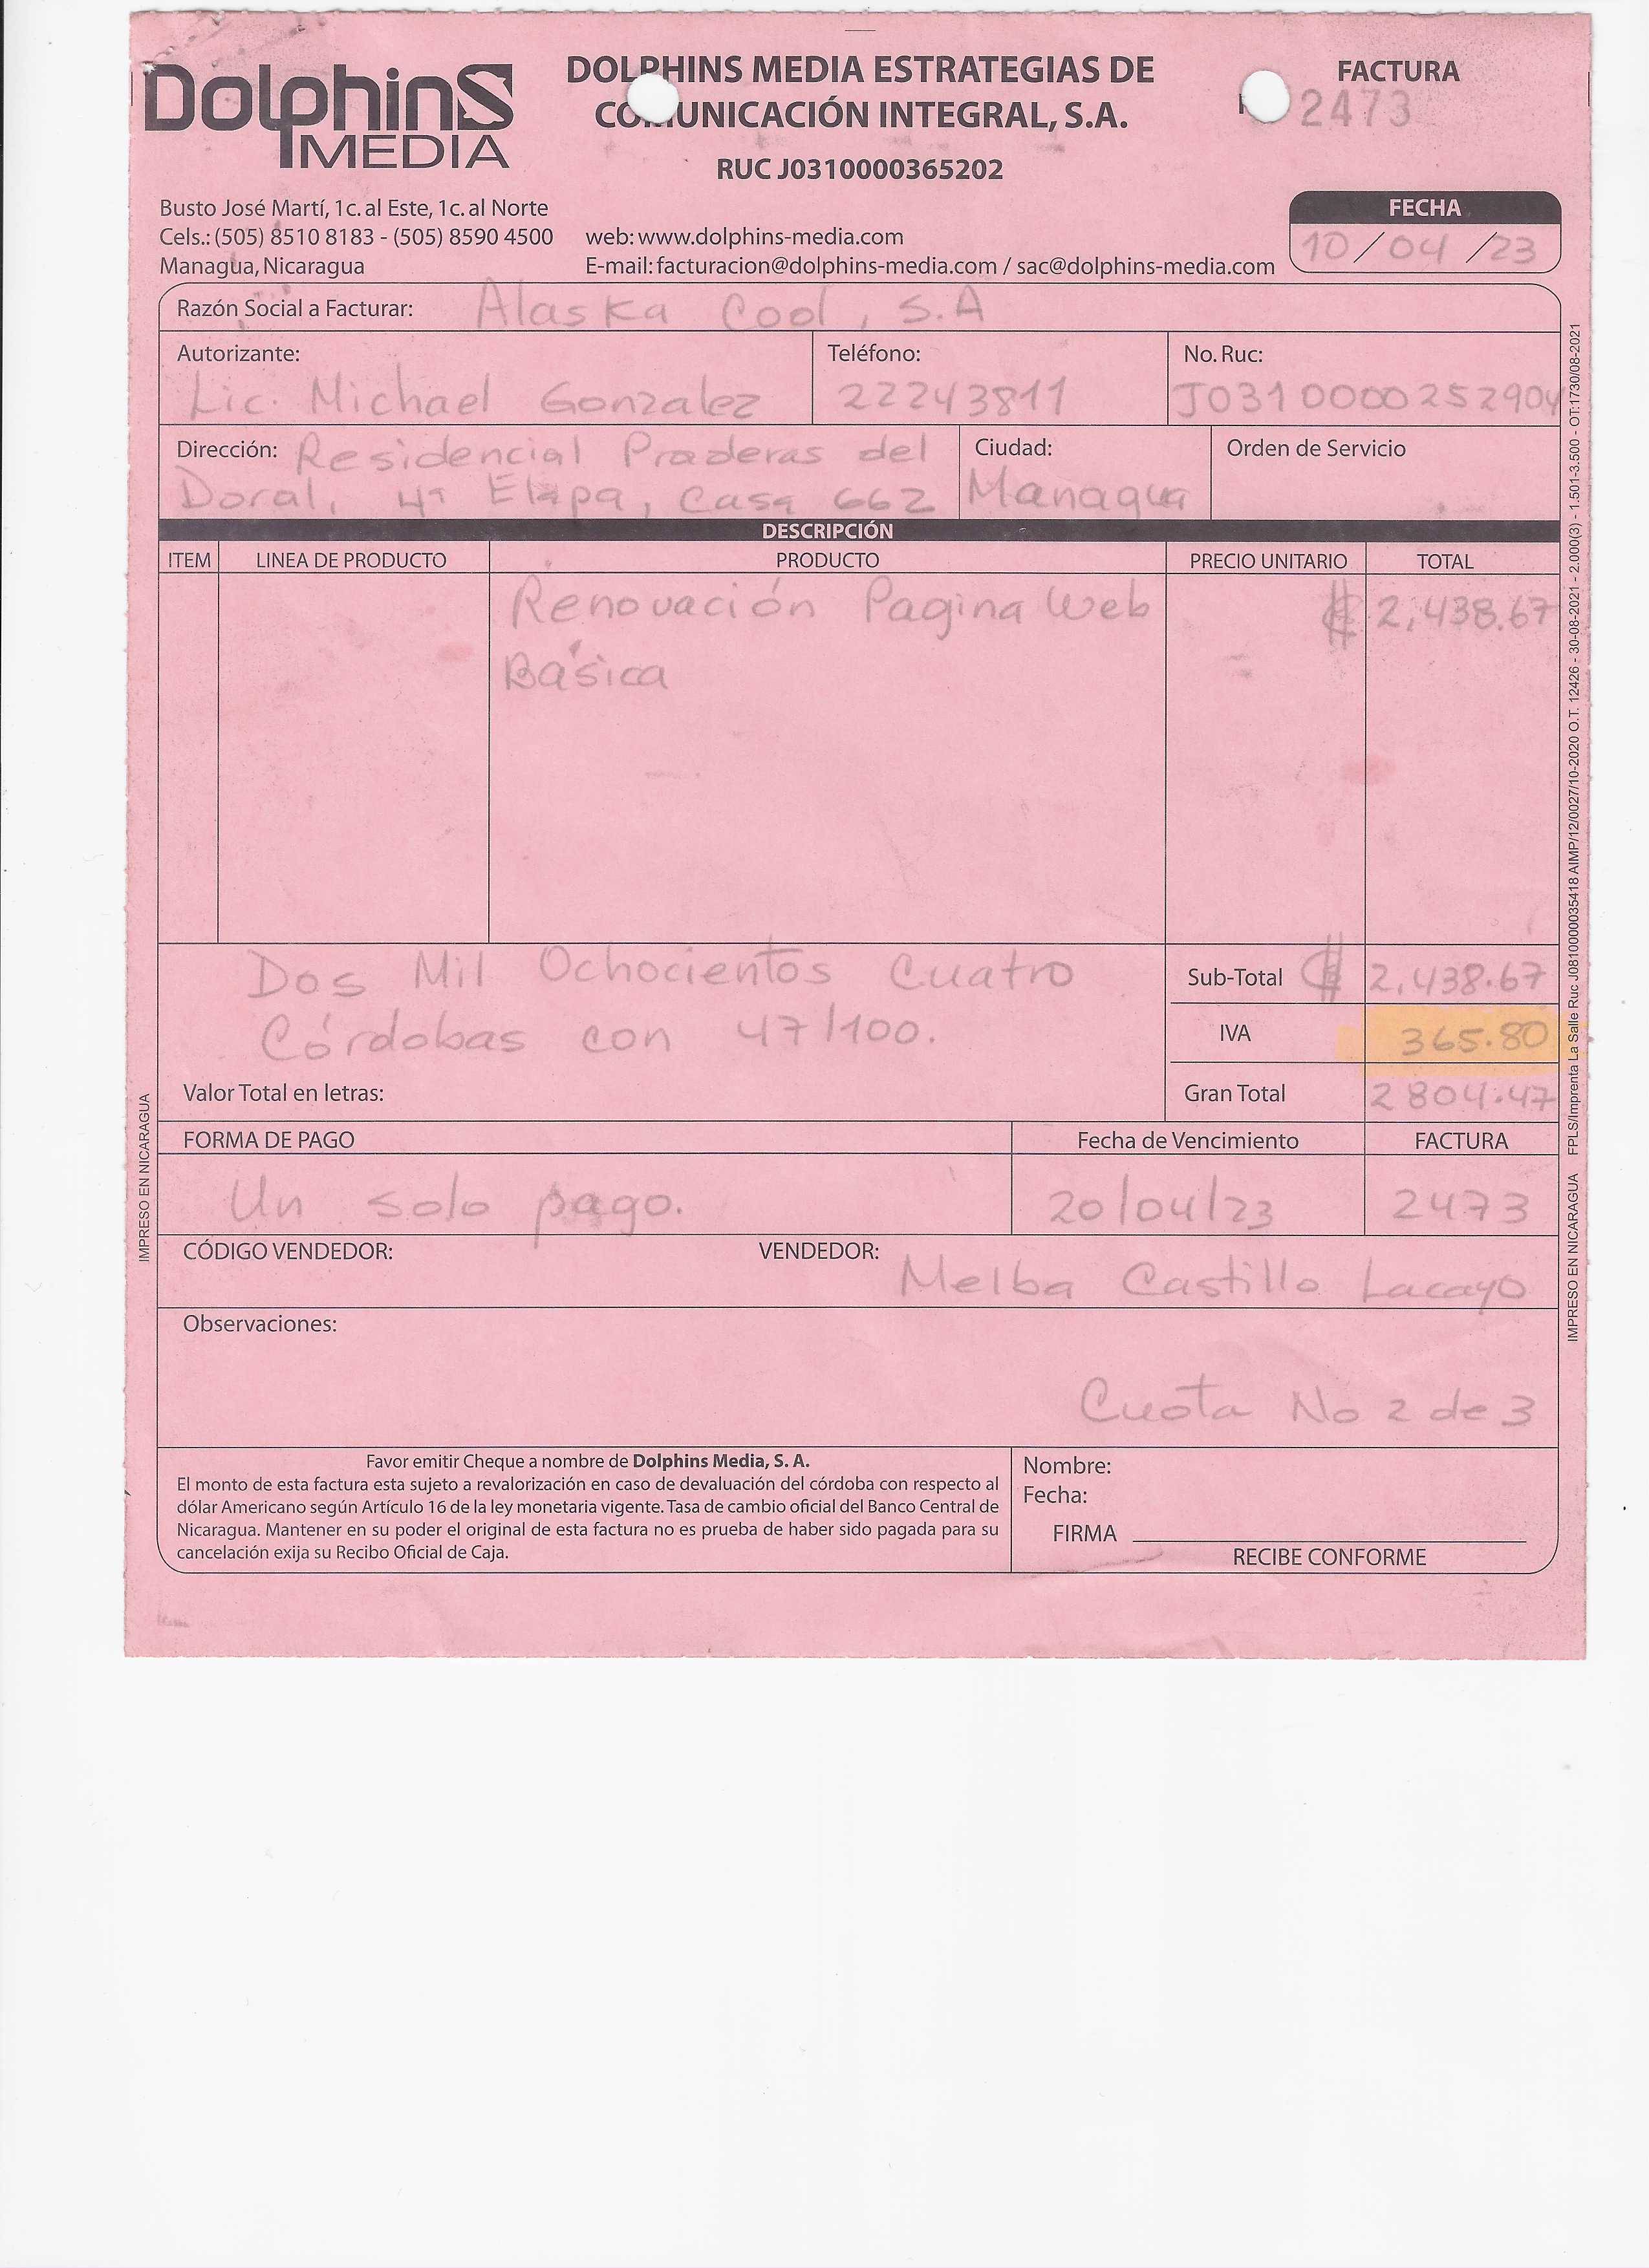 DolphinS
MEDIA
DOLPHINS MEDIA ESTRATEGIAS DE
COMUNICACIÓN INTEGRAL, S.A.
RUC J0310000365202
FACTURA
2473
Busto José Martí, 1c. al Este, 1c. al Norte
Cels.: (505) 8510 8183 - (505) 8590 4500
Managua, Nicaragua
web: www.dolphins-media.com
E-mail: facturacion@dolphins-media.com / sac@dolphins-media.com
FECHA
10/04/23
Razón Social a Facturar: Alaska Cool, S.A
Autorizante: Teléfono: No. Ruc:
Lic. Michael Gonzalez 22243811 J0310000252904
Dirección: Residencial Praderas del Ciudad: Orden de Servicio
Doral, 4ª Etapa, Casa 662 Managua
DESCRIPCIÓN
ITEM LINEA DE PRODUCTO PRODUCTO PRECIO UNITARIO TOTAL
Renovación Pagina Web C$ 2,438.67
Básica
Dos Mil Ochocientos Cuatro Sub-Total C$ 2,438.67
Córdobas con 47/100. IVA 365.80
Valor Total en letras: Gran Total 2804.47
FORMA DE PAGO Fecha de Vencimiento FACTURA
Un solo pago. 20/04/23 2473
CÓDIGO VENDEDOR: VENDEDOR: Melba Castillo Lacayo
Observaciones:
Cuota No 2 de 3
Favor emitir Cheque a nombre de Dolphins Media, S. A.
El monto de esta factura esta sujeto a revalorización en caso de devaluación del córdoba con respecto al
dólar Americano según Artículo 16 de la ley monetaria vigente. Tasa de cambio oficial del Banco Central de
Nicaragua. Mantener en su poder el original de esta factura no es prueba de haber sido pagada para su
cancelación exija su Recibo Oficial de Caja.
Nombre:
Fecha:
FIRMA
RECIBE CONFORME
IMPRESO EN NICARAGUA
IMPRESO EN NICARAGUA FPLS/Imprenta La Salle Ruc J0810000035418 AIMP/12/0027/10-2020 O.T. 12426 - 30-08-2021 - 2.000(3) - 1.501-3.500 - OT:1730/08-2021